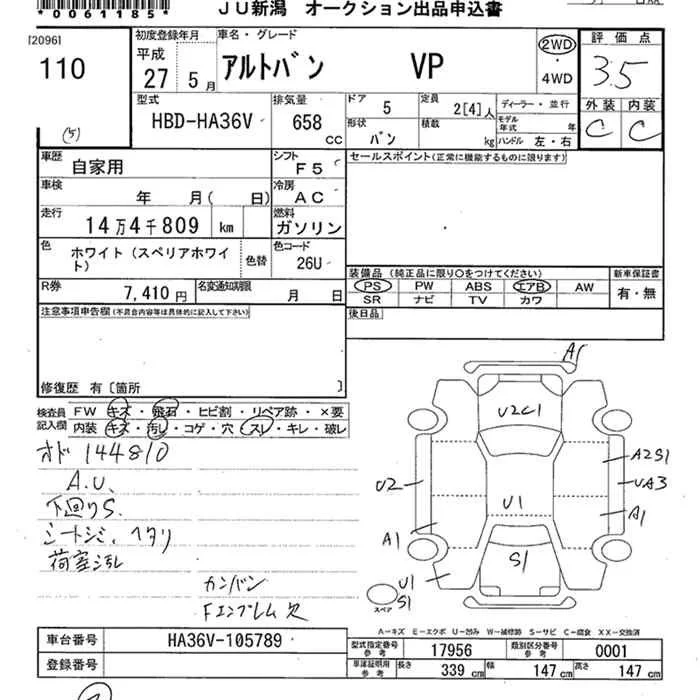 *0061185*
JU新潟 オークション出品申込書
[2096]
110
(5)
初度登録年月
平成
27 5月
車名・グレード
アルトバン VP
2WD
・
4WD
評価点
3.5
型式
HBD-HA36V
排気量
658
cc
ドア
5
定員
2[4]人
形状
バン
積載
kg
ディーラー・並行
モデル年式 年
ハンドル 左・右
外装 内装
C C
車歴
自家用
シフト
F5
車検
年 月( 日)
冷房
AC
走行
14万4千809 km
燃料
ガソリン
色
ホワイト(スペリアホワイト)
色替
色コード
26U
R券
7,410円
名変通知期限
月 日
セールスポイント(正常に機能するものに限ります)
装備品(純正品に限り○をつけてください)
PS PW ABS エアB AW
SR ナビ TV カワ
新車保証書
有・無
後日品
注意事項申告欄(不具合内容等は具体的に記入して下さい)
修復歴 有[箇所 ]
検査員記入欄
FW キズ・飛石・ヒビ割・リペア跡・×要
内装 キズ・汚レ・コゲ・穴・スレ・キレ・破レ
オド 144810
A.U.
下回りS.
シートシミ、ヘタリ
荷室汚れ
カンバン
Fエンブレム欠
A1
U2C1
A2S1
U2
UA3
U1
A1
A1
S1
U1
S1
スペア
A-キズ E-エクボ U-凹み W-補修跡 S-サビ C-腐食 XX-交換済
車台番号
HA36V-105789
登録番号
型式指定番号 参考
17956
類別区分番号 参考
0001
車庫証明用 参考
長さ 339 cm
幅 147 cm
高さ 147 cm